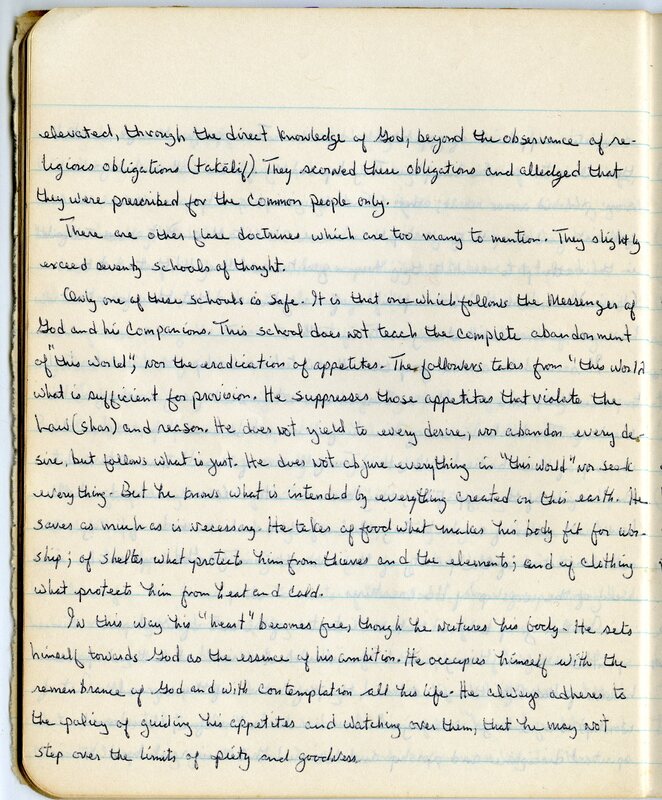 elevated, through the direct knowledge of God, beyond the observance of re-
ligious obligations (takālif). They scorned these obligations and alledged that
they were prescribed for the common people only.
There are other flase doctrines which are too many to mention. They slightly
exceed seventy schools of thought.
Only one of these schools is safe. It is that one which follows the Messenger of
God and his companions. This school does not teach the complete abandonment
of "this world", nor the eradication of appetites. The followers takes from "this world
what is sufficient for provision. He suppresses those appetites that violate the
Law (shar) and reason. He does not yield to every desire, nor abandon every de-
sire, but follows what is just. He does not abjure everything in "this world" nor seek
everything. But he knows what is intended by everything created on this earth. He
saves as much as is necessary. He takes of food what makes his body fit for wor-
ship; of shelter what protects him from thieves and the elements; and of clothing
what protects him from heat and cold.
In this way his "heart" becomes free, though he nurtures his body. He sets
himself towards God as the essence of his ambition. He occupies himself with the
remembrance of God and with contemplation all his life. He always adheres to
the policy of guiding his appetites and watching over them, that he may not
step over the limits of piety and goodness.